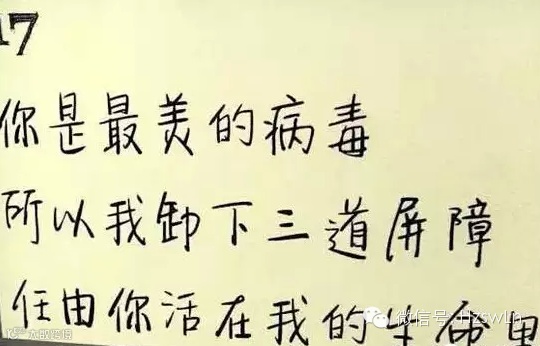 17
你是最美的病毒
所以我卸下三道屏障
任由你活在我的生命里
微信号: Hzswlh